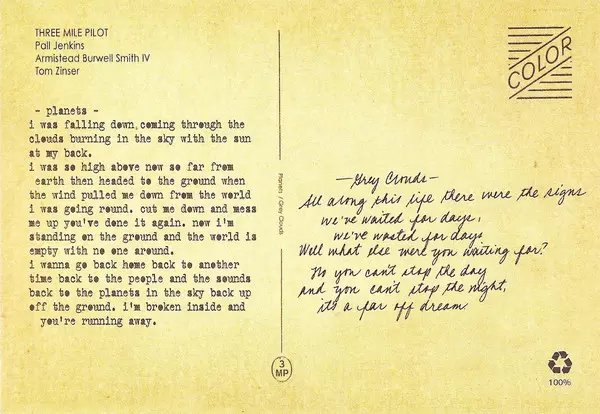 THREE MILE PILOT
Pall Jenkins
Armistead Burwell Smith IV
Tom Zinser
- planets -
i was falling down,coming through the
clouds burning in the sky with the sun
at my back.
i was so high above now so far from
earth then headed to the ground when
the wind pulled me down from the world
i was going round. cut me down and mess
me up you've done it again. now i'm
standing on the ground and the world is
empty with no one around.
i wanna go back home back to another
time back to the people and the sounds
back to the planets in the sky back up
off the ground. i'm broken inside and
you're running away.
Planets / Grey Clouds
3
MP
COLOR
—Grey Clouds—
All along this life there were the signs
we've waited for days,
we've wasted for days
Well what else were you waiting for?
No you can't stop the day
and you can't stop the night,
it's a far off dream.
100%